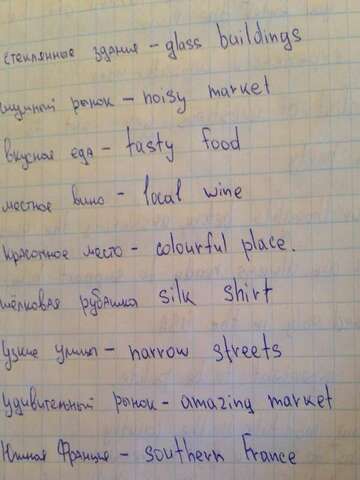 стеклянные здания – glass buildings
шумный рынок – noisy market
вкусная еда – tasty food
местное вино – local wine
красочное место – colourful place.
шёлковая рубашка silk shirt
узкие улицы – narrow streets
удивительный рынок – amazing market
Южная Франция – southern France